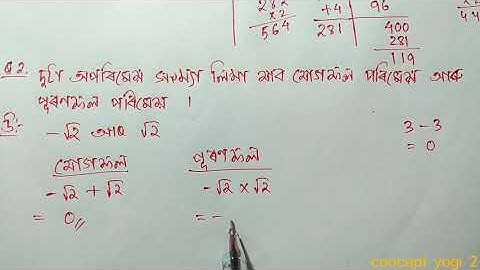 232
×2
564
+4
231
96
400
231
119
×2
44
Q2. দুটা অপৰিমেয় সংখ্যা লিখা যাৰ যোগফল পৰিমেয় আৰু
পূৰণফল পৰিমেয় ।
উ:- -√2 আৰু √2
3 - 3
= 0
যোগফল
-√2 + √2
= 0
পূৰণফল
-√2 × √2
= -
concept yogi 2